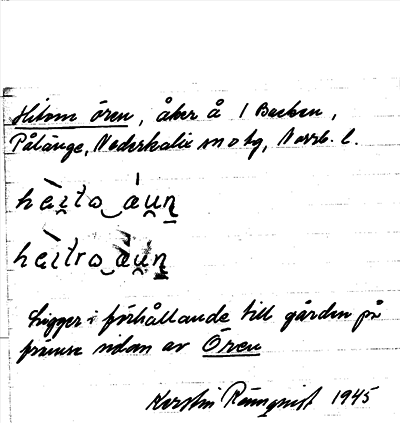 Hitom ören, åker å 1 Backen,
Pålänge, Nederkalix sn o tg, Norrb. l.
Ligger i förhållande till gården på
främre sidan av Ören
Kerstin Rönnqvist 1945